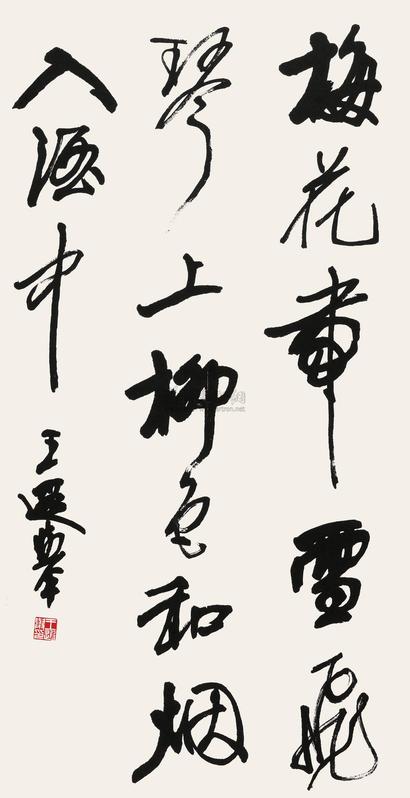 梅花帶雪飛
琴上柳色和烟
入酒中 王遐舉